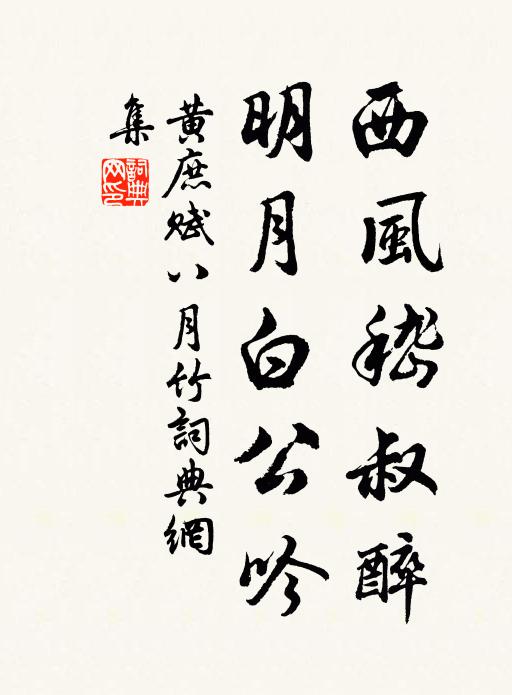 西風嵇叔醉
明月白公吟
黃庶賦八月竹詞典網
集
詞典網印